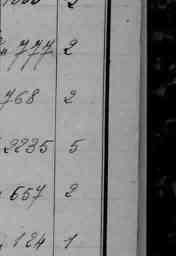 777 2
768 2
2235 5
557 2
124 1